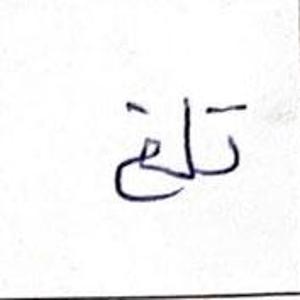 تلغ